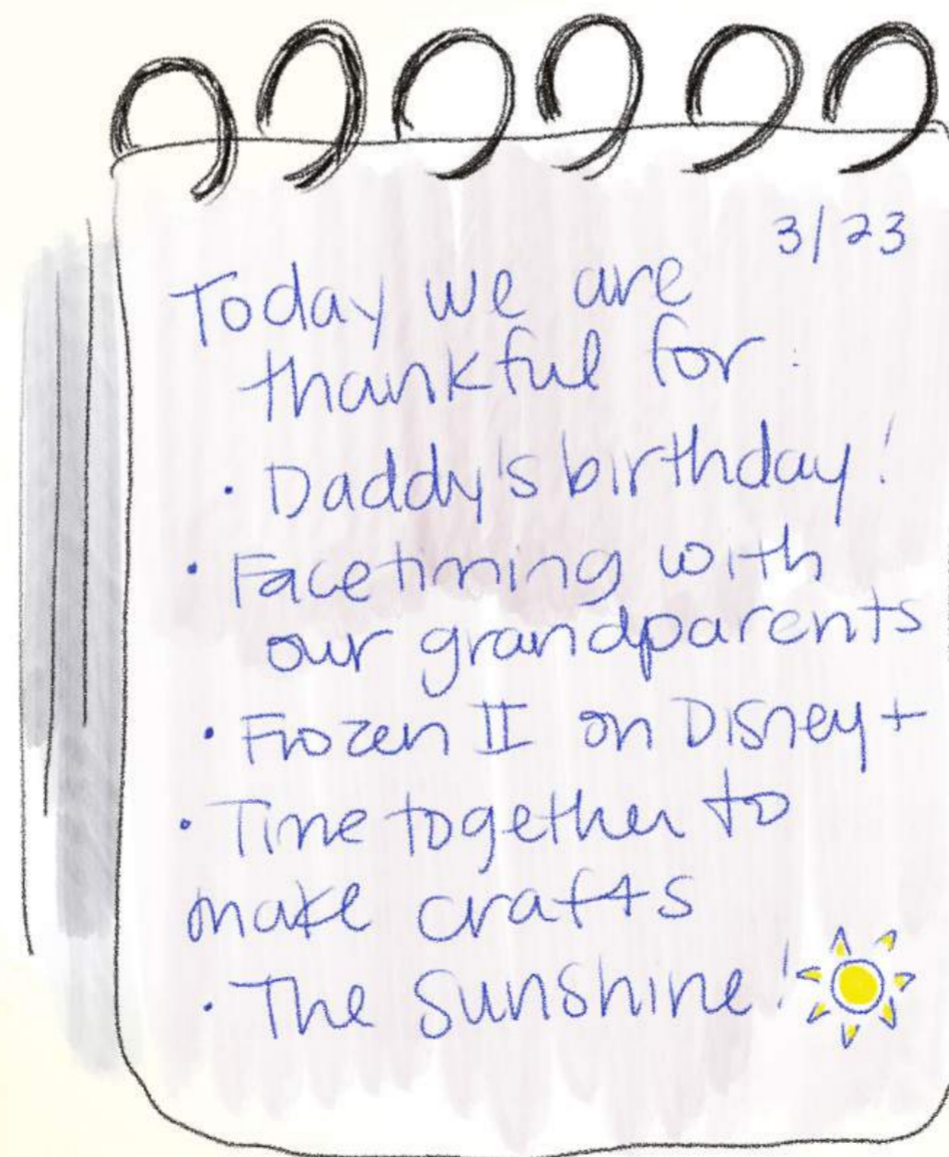 3/23
Today we are
thankful for:
· Daddy's birthday!
· Facetiming with
our grandparents
· Frozen II on Disney+
· Time together to
make crafts
· The Sunshine!